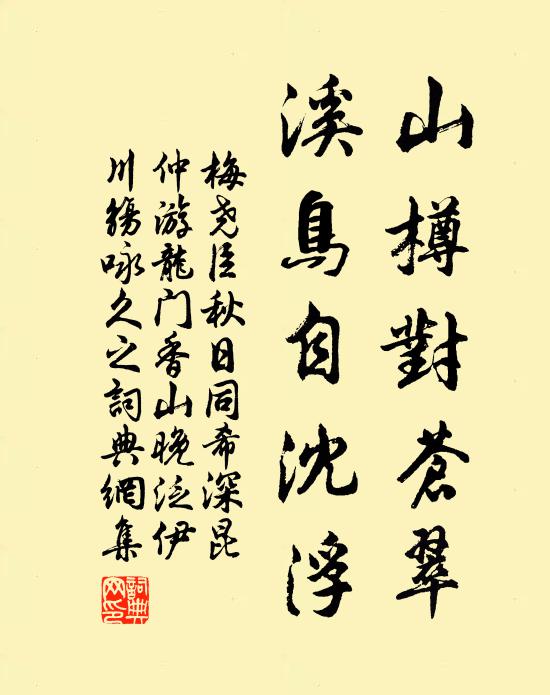 山樽對蒼翠
溪鳥自沈浮
梅尧臣秋日同希深昆
仲游龍门香山晚泛伊
川觴咏久之詞典網集
詞典网印